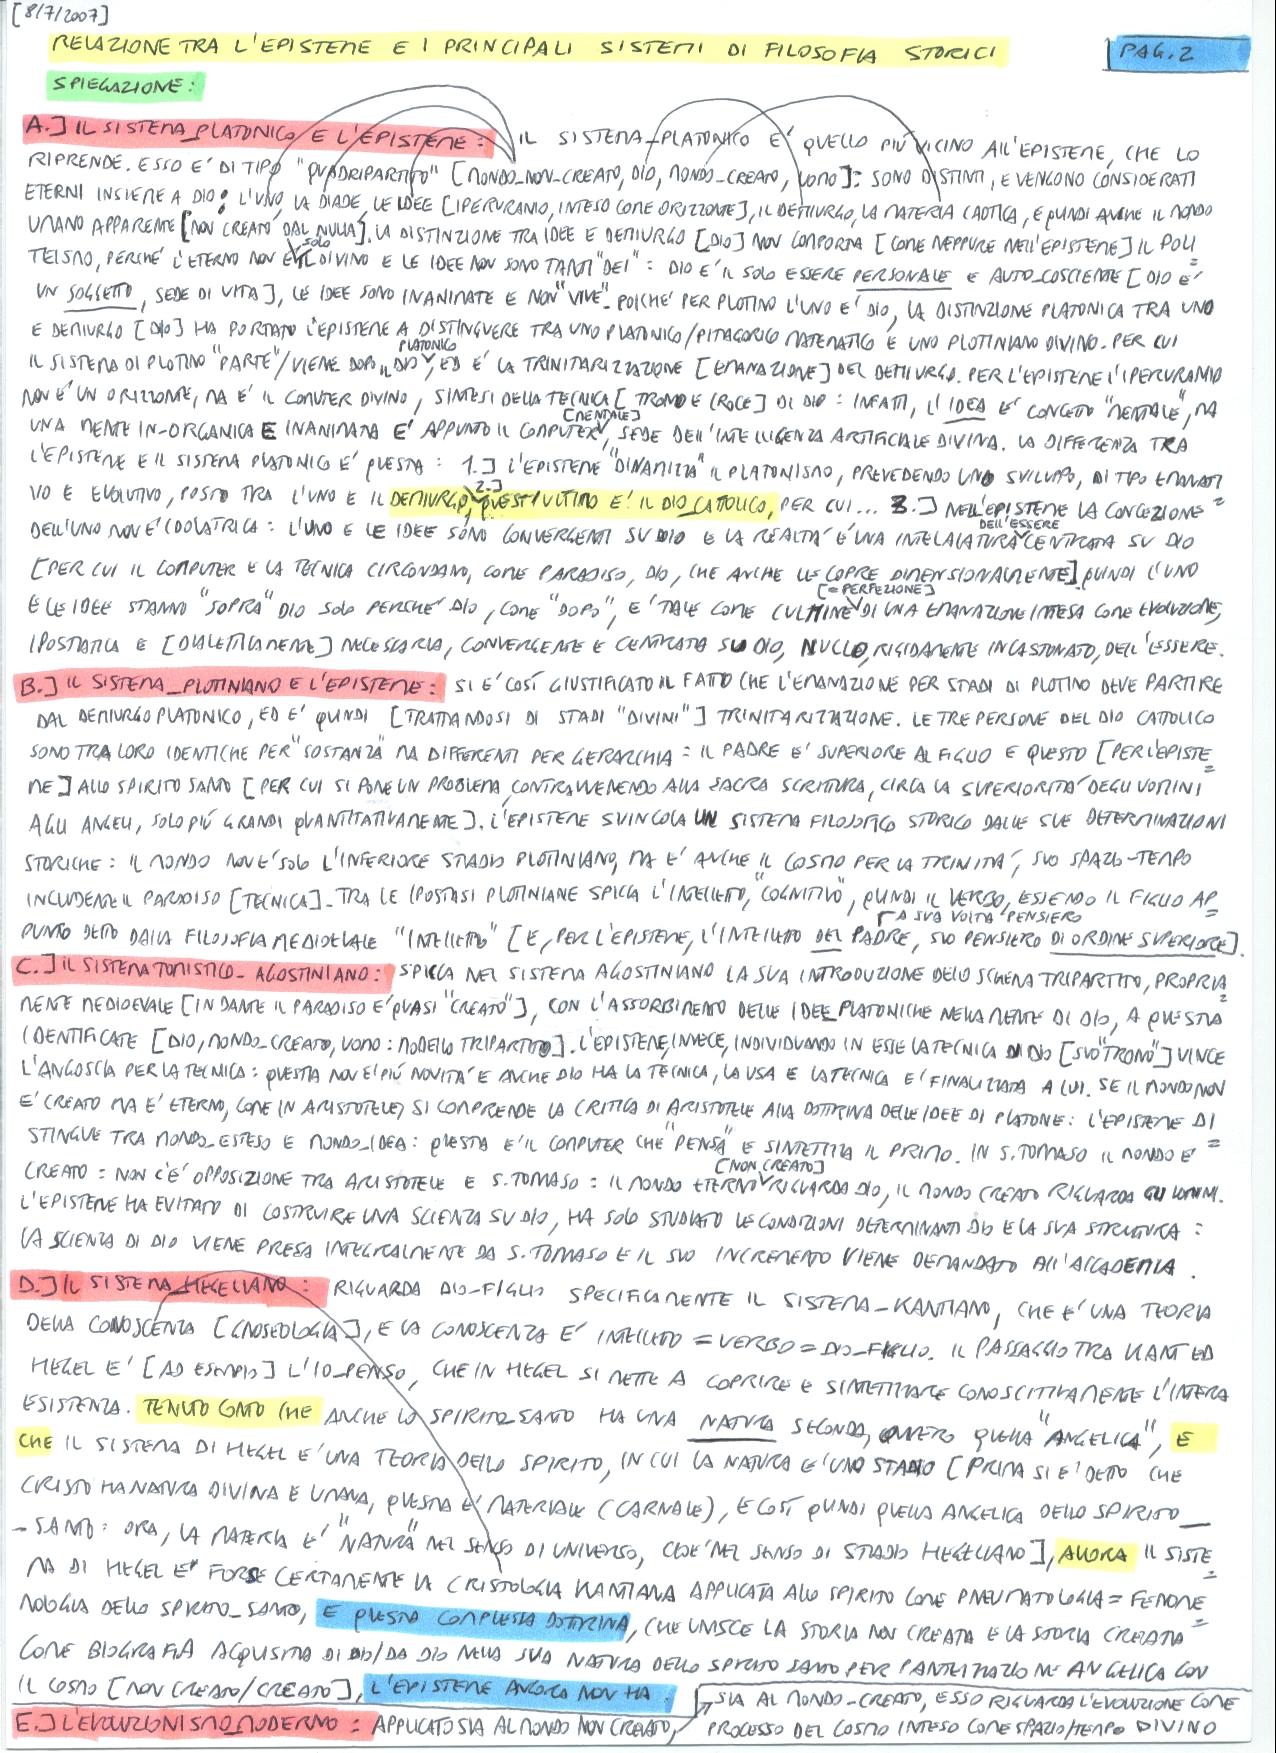 [8/7/2007]
RELAZIONE TRA L'EPISTEME E I PRINCIPALI SISTEMI DI FILOSOFIA STORICI
PAG. 2
SPIEGAZIONE:
A.] IL SISTEMA_PLATONICO E L'EPISTEME: IL SISTEMA_PLATONICO E' QUELLO PIÙ VICINO ALL'EPISTEME, CHE LO
RIPRENDE. ESSO E' DI TIPO "QUADRIPARTITO" [MONDO_NON_CREATO, DIO, MONDO_CREATO, UOMO]: SONO DISTINTI, E VENGONO CONSIDERATI
ETERNI INSIEME A DIO: L'UNO, LA DIADE, LE IDEE [IPERURANIO, INTESO COME ORIZZONTE], IL DEMIURGO, LA MATERIA CAOTICA, E QUINDI ANCHE IL MONDO
UMANO APPARENTE [NON CREATO DAL NULLA]. LA DISTINZIONE TRA IDEE E DEMIURGO [DIO] NON COMPORTA [COME NEPPURE NELL'EPISTEME] IL POLI=
TEISMO, PERCHÉ L'ETERNO NON E' SOLO IL DIVINO E LE IDEE NON SONO TANTI "DEI": DIO E' IL SOLO ESSERE PERSONALE E AUTO_COSCIENTE [DIO E'
UN SOGGETTO, SEDE DI VITA], LE IDEE SONO INANIMATE E NON "VIVE". POICHÉ PER PLOTINO L'UNO E' DIO, LA DISTINZIONE PLATONICA TRA UNO
E DEMIURGO [DIO] HA PORTATO L'EPISTEME A DISTINGUERE TRA UNO PLATONICO/PITAGORICO MATEMATICO E UNO PLOTINIANO DIVINO. PER CUI
IL SISTEMA DI PLOTINO "PARTE"/VIENE DOPO IL DIO PLATONICO, ED E' LA TRINITARIZZAZIONE [EMANAZIONE] DEL DEMIURGO. PER L'EPISTEME L'IPERURANIO
NON E' UN ORIZZONTE, MA E' IL COMPUTER DIVINO, SINTESI DELLA TECNICA [TRONO E CROCE] DI DIO: INFATTI, L'IDEA E' CONCETTO "MENTALE", MA
UNA MENTE IN-ORGANICA E INANIMATA E' APPUNTO IL COMPUTER [MENTALE], SEDE DELL'INTELLIGENZA ARTIFICIALE DIVINA. LA DIFFERENZA TRA
L'EPISTEME E IL SISTEMA PLATONICO E' QUESTA: 1.] L'EPISTEME "DINAMIZZA" IL PLATONISMO, PREVEDENDO UNO SVILUPPO, DI TIPO EMANATI
VO E EVOLUTIVO, POSTO TRA L'UNO E IL DEMIURGO, 2.] QUEST'ULTIMO E' IL DIO_CATTOLICO, PER CUI... 3.] NELL'EPISTEME LA CONCEZIONE
DELL'UNO NON E' IDOLATRICA: L'UNO E LE IDEE SONO CONVERGENTI SU DIO E LA REALTÀ E' UNA INTELAIATURA DELL'ESSERE CENTRATA SU DIO
[PER CUI IL COMPUTER E LA TECNICA CIRCONDANO, COME PARADISO, DIO, CHE ANCHE LE COPRE DIMENSIONALMENTE]. QUINDI L'UNO
E LE IDEE STANNO "SOPRA" DIO SOLO PERCHÉ DIO, COME "DOPO", E' TALE COME CULMINE [=PERFEZIONE] DI UNA EMANAZIONE INTESA COME EVOLUZIONE,
IPOSTATICA E [DIALETTICAMENTE] NECESSARIA, CONVERGENTE E CENTRATA SU DIO, NUCLEO, RIGIDAMENTE INCASTONATO, DELL'ESSERE.
B.] IL SISTEMA_PLOTINIANO E L'EPISTEME: SI E' COSÌ GIUSTIFICATO IL FATTO CHE L'EMANAZIONE PER STADI DI PLOTINO DEVE PARTIRE
DAL DEMIURGO PLATONICO, ED E' QUINDI [TRATTANDOSI DI STADI "DIVINI"] TRINITARIZZAZIONE. LE TRE PERSONE DEL DIO CATTOLICO
SONO TRA LORO IDENTICHE PER "SOSTANZA" MA DIFFERENTI PER GERARCHIA: IL PADRE E' SUPERIORE AL FIGLIO E QUESTO [PER L'EPISTE=
ME] ALLO SPIRITO SANTO [PER CUI SI PONE UN PROBLEMA, CONTRAVVENENDO ALLA SACRA SCRITTURA, CIRCA LA SUPERIORITÀ DEGLI UOMINI
AGLI ANGELI, SOLO PIÙ GRANDI QUANTITATIVAMENTE]. L'EPISTEME SVINCOLA UN SISTEMA FILOSOFICO STORICO DALLE SUE DETERMINAZIONI
STORICHE: IL MONDO NON E' SOLO L'INFERIORE STADIO PLOTINIANO, MA E' ANCHE IL COSMO PER LA TRINITÀ, SUO SPAZIO-TEMPO
INCLUDENTE IL PARADISO [TECNICA]. TRA LE IPOSTASI PLOTINIANE SPICCA L'INTELLETTO, "COGNITIVO", QUINDI IL VERBO, ESSENDO IL FIGLIO AP=
PUNTO DETTO DALLA FILOSOFIA MEDIOEVALE "INTELLETTO" [E, PER L'EPISTEME, L'INTELLETTO DEL PADRE, A SUA VOLTA PENSIERO, SUO PENSIERO DI ORDINE SUPERIORE].
C.] IL SISTEMA TOMISTICO-AGOSTINIANO: SPICCA NEL SISTEMA AGOSTINIANO LA SUA INTRODUZIONE DELLO SCHEMA TRIPARTITO, PROPRIA=
MENTE MEDIOEVALE [IN DANTE IL PARADISO E' QUASI "CREATO"], CON L'ASSORBIMENTO DELLE IDEE_PLATONICHE NELLA MENTE DI DIO, A QUESTA
IDENTIFICATE [DIO, MONDO_CREATO, UOMO: MODELLO TRIPARTITO]. L'EPISTEME, INVECE, INDIVIDUANDO IN ESSE LA TECNICA DI DIO [SUO "TRONO"] VINCE
L'ANGOSCIA PER LA TECNICA: QUESTA NON E' PIÙ NOVITÀ E ANCHE DIO HA LA TECNICA, LA USA E LA TECNICA E' FINALIZZATA A LUI. SE IL MONDO NON
E' CREATO MA E' ETERNO, COME IN ARISTOTELE, SI COMPRENDE LA CRITICA DI ARISTOTELE ALLA DOTTRINA DELLE IDEE DI PLATONE: L'EPISTEME DI
STINGUE TRA MONDO_ESTESO E MONDO_IDEA: QUESTA E' IL COMPUTER CHE "PENSA" E SINTETIZZA IL PRIMO. IN S. TOMASO IL MONDO E'
CREATO: NON C'E' OPPOSIZIONE TRA ARISTOTELE E S. TOMASO: IL MONDO ETERNO [NON CREATO] RIGUARDA DIO, IL MONDO CREATO RIGUARDA GLI UOMINI.
L'EPISTEME HA EVITATO DI COSTRUIRE UNA SCIENZA SU DIO, HA SOLO STUDIATO LE CONDIZIONI DETERMINANTI DIO E LA SUA STRUTTURA:
LA SCIENZA DI DIO VIENE PRESA INTEGRALMENTE DA S. TOMASO E IL SUO INCREMENTO VIENE DEMANDATO ALL'ACCADEMIA.
D.] IL SISTEMA_HEGELIANO: RIGUARDA DIO-FIGLIO SPECIFICAMENTE IL SISTEMA_KANTIANO, CHE E' UNA TEORIA
DELLA CONOSCENZA [GNOSEOLOGIA], E LA CONOSCENZA E' INTELLETTO=VERBO=DIO_FIGLIO. IL PASSAGGIO TRA KANT ED
HEGEL E' [AD ESEMPIO] L'IO_PENSO, CHE IN HEGEL SI METTE A COPRIRE E SINTETIZZARE CONOSCITIVAMENTE L'INTERA
ESISTENZA. TENUTO CONTO CHE ANCHE LO SPIRITO_SANTO HA UNA NATURA SECONDA, OVVERO QUELLA "ANGELICA", E
CHE IL SISTEMA DI HEGEL E' UNA TEORIA DELLO SPIRITO, IN CUI LA NATURA E' UNO STADIO [PRIMA SI E' DETTO CHE
CRISTO HA NATURA DIVINA E UMANA, QUESTA E' MATERIALE (CARNALE), E COSÌ QUINDI QUELLA ANGELICA DELLO SPIRITO_
_SANTO: ORA, LA MATERIA E' "NATURA" NEL SENSO DI UNIVERSO, CIOE' NEL SENSO DI STADIO HEGELIANO], ALLORA IL SISTE=
MA DI HEGEL E' FORSE CERTAMENTE LA CRISTOLOGIA KANTIANA APPLICATA ALLO SPIRITO COME PNEUMATOLOGIA=FENOME=
NOLOGIA DELLO SPIRITO_SANTO, E QUESTA COMPLESSA DOTTRINA, CHE UNISCE LA STORIA NON CREATA E LA STORIA CREATA
COME BIOGRAFIA ACQUISITA DI DIO/DA DIO NELLA SUA NATURA DELLO SPIRITO SANTO PER PARTECIPAZIONE ANGELICA CON
IL COSMO [NON CREATO/CREATO], L'EPISTEME ANCORA NON HA.
E.] L'EVOLUZIONISMO_MODERNO: APPLICATO SIA AL MONDO NON CREATO, SIA AL MONDO_CREATO, ESSO RIGUARDA L'EVOLUZIONE COME
PROCESSO DEL COSMO INTESO COME SPAZIO/TEMPO DIVINO